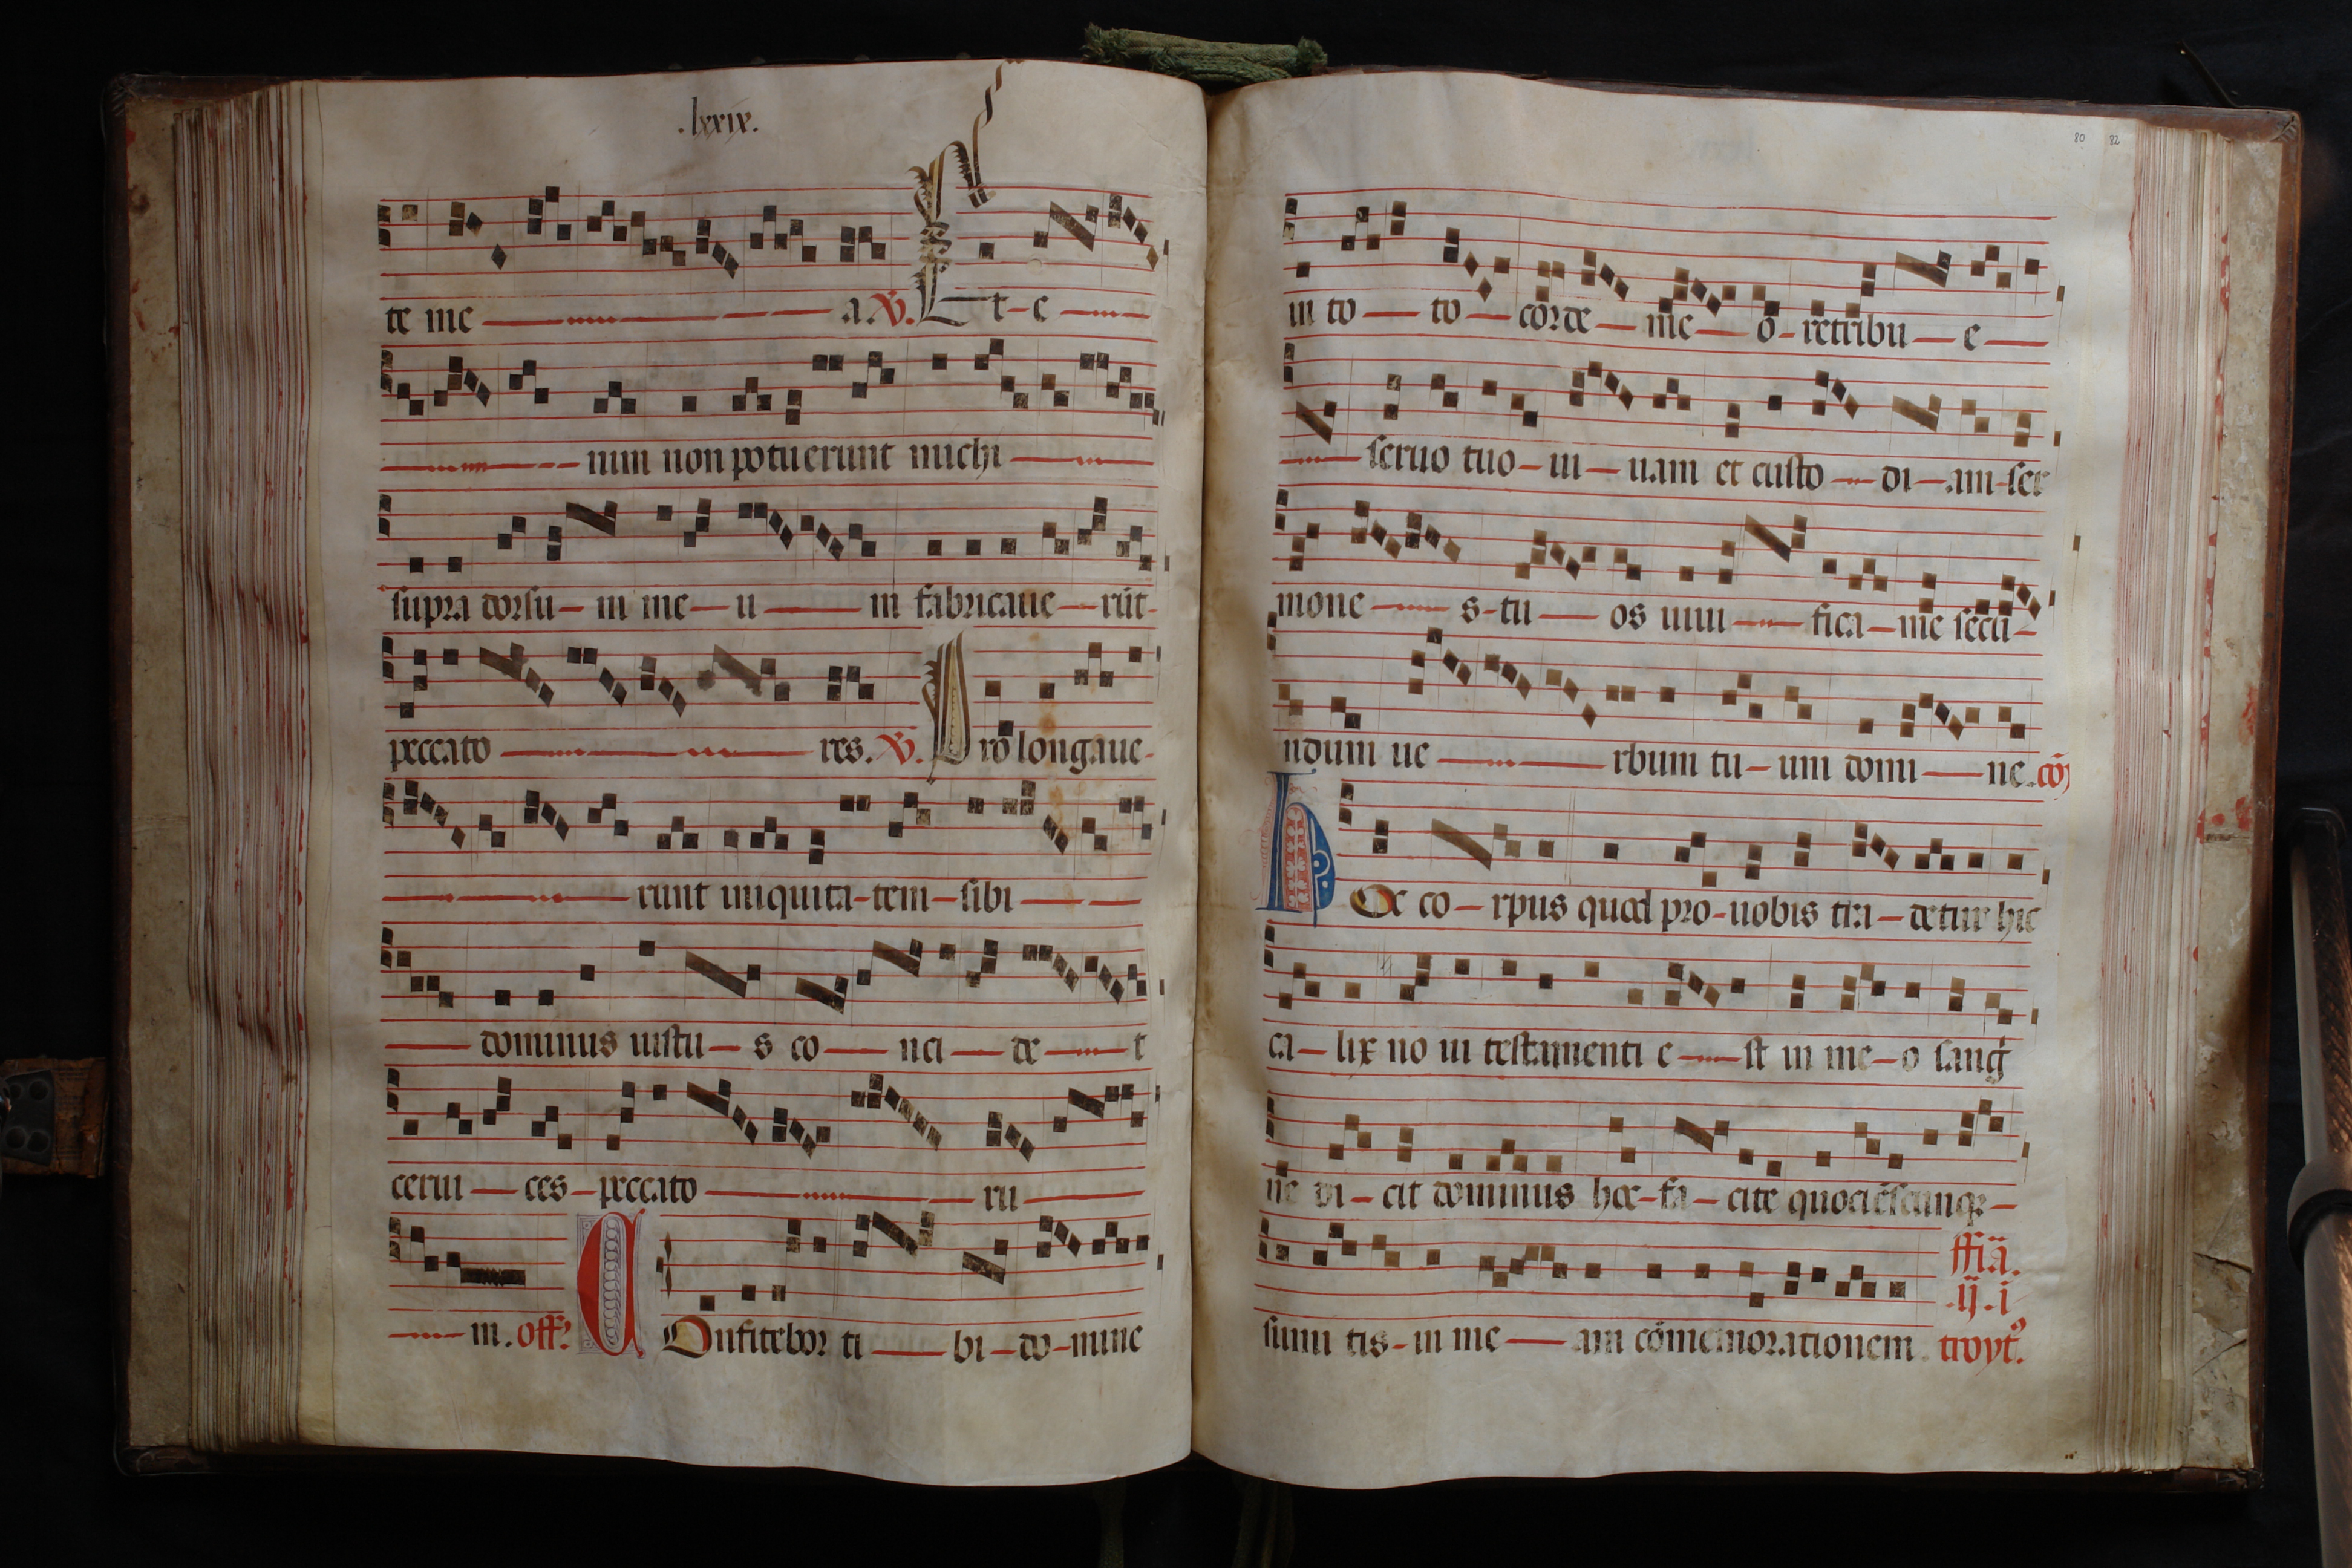 .lxxix.
te me a. V. Et-e
nim non potuerunt michi
supra dorsu-m me-u m fabricaue-rūt-
peccato res. V. Prolongaue-
runt iniquita-tem-sibi
dominus iustu-s co-nci-de-t
cerui-ces-peccato ru
m. off? Confitebor ti-bi-do-mine
80 82
in to-to-corde-me-o-retribu-e-
seruo tuo-ui-uam et custo-di-am-ser
mone-s-tu-os uiui-fica-me secu-
ndum ue-rbum tu-um domi-ne. cō
Hoc co-rpus quod pro-uobis tra-detur hic
ca-lix no ui testamenti e-st in me-o sang
ne di-cit dominus hoc-fa-cite quociēscunq-
sumi tis-in me-am cōmemorationem troyt?
ffiā.
.ij.i